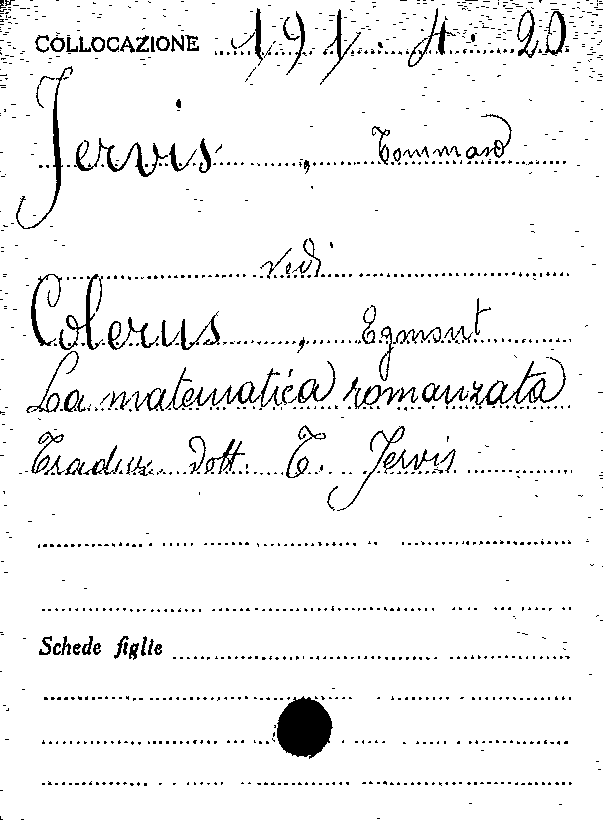 COLLOCAZIONE 191. 4. 20
Jervis, Tommaso
vedi
Colerus, Egmont
La matematica romanzata
Traduz. dott. T. Jervis
Schede figlie